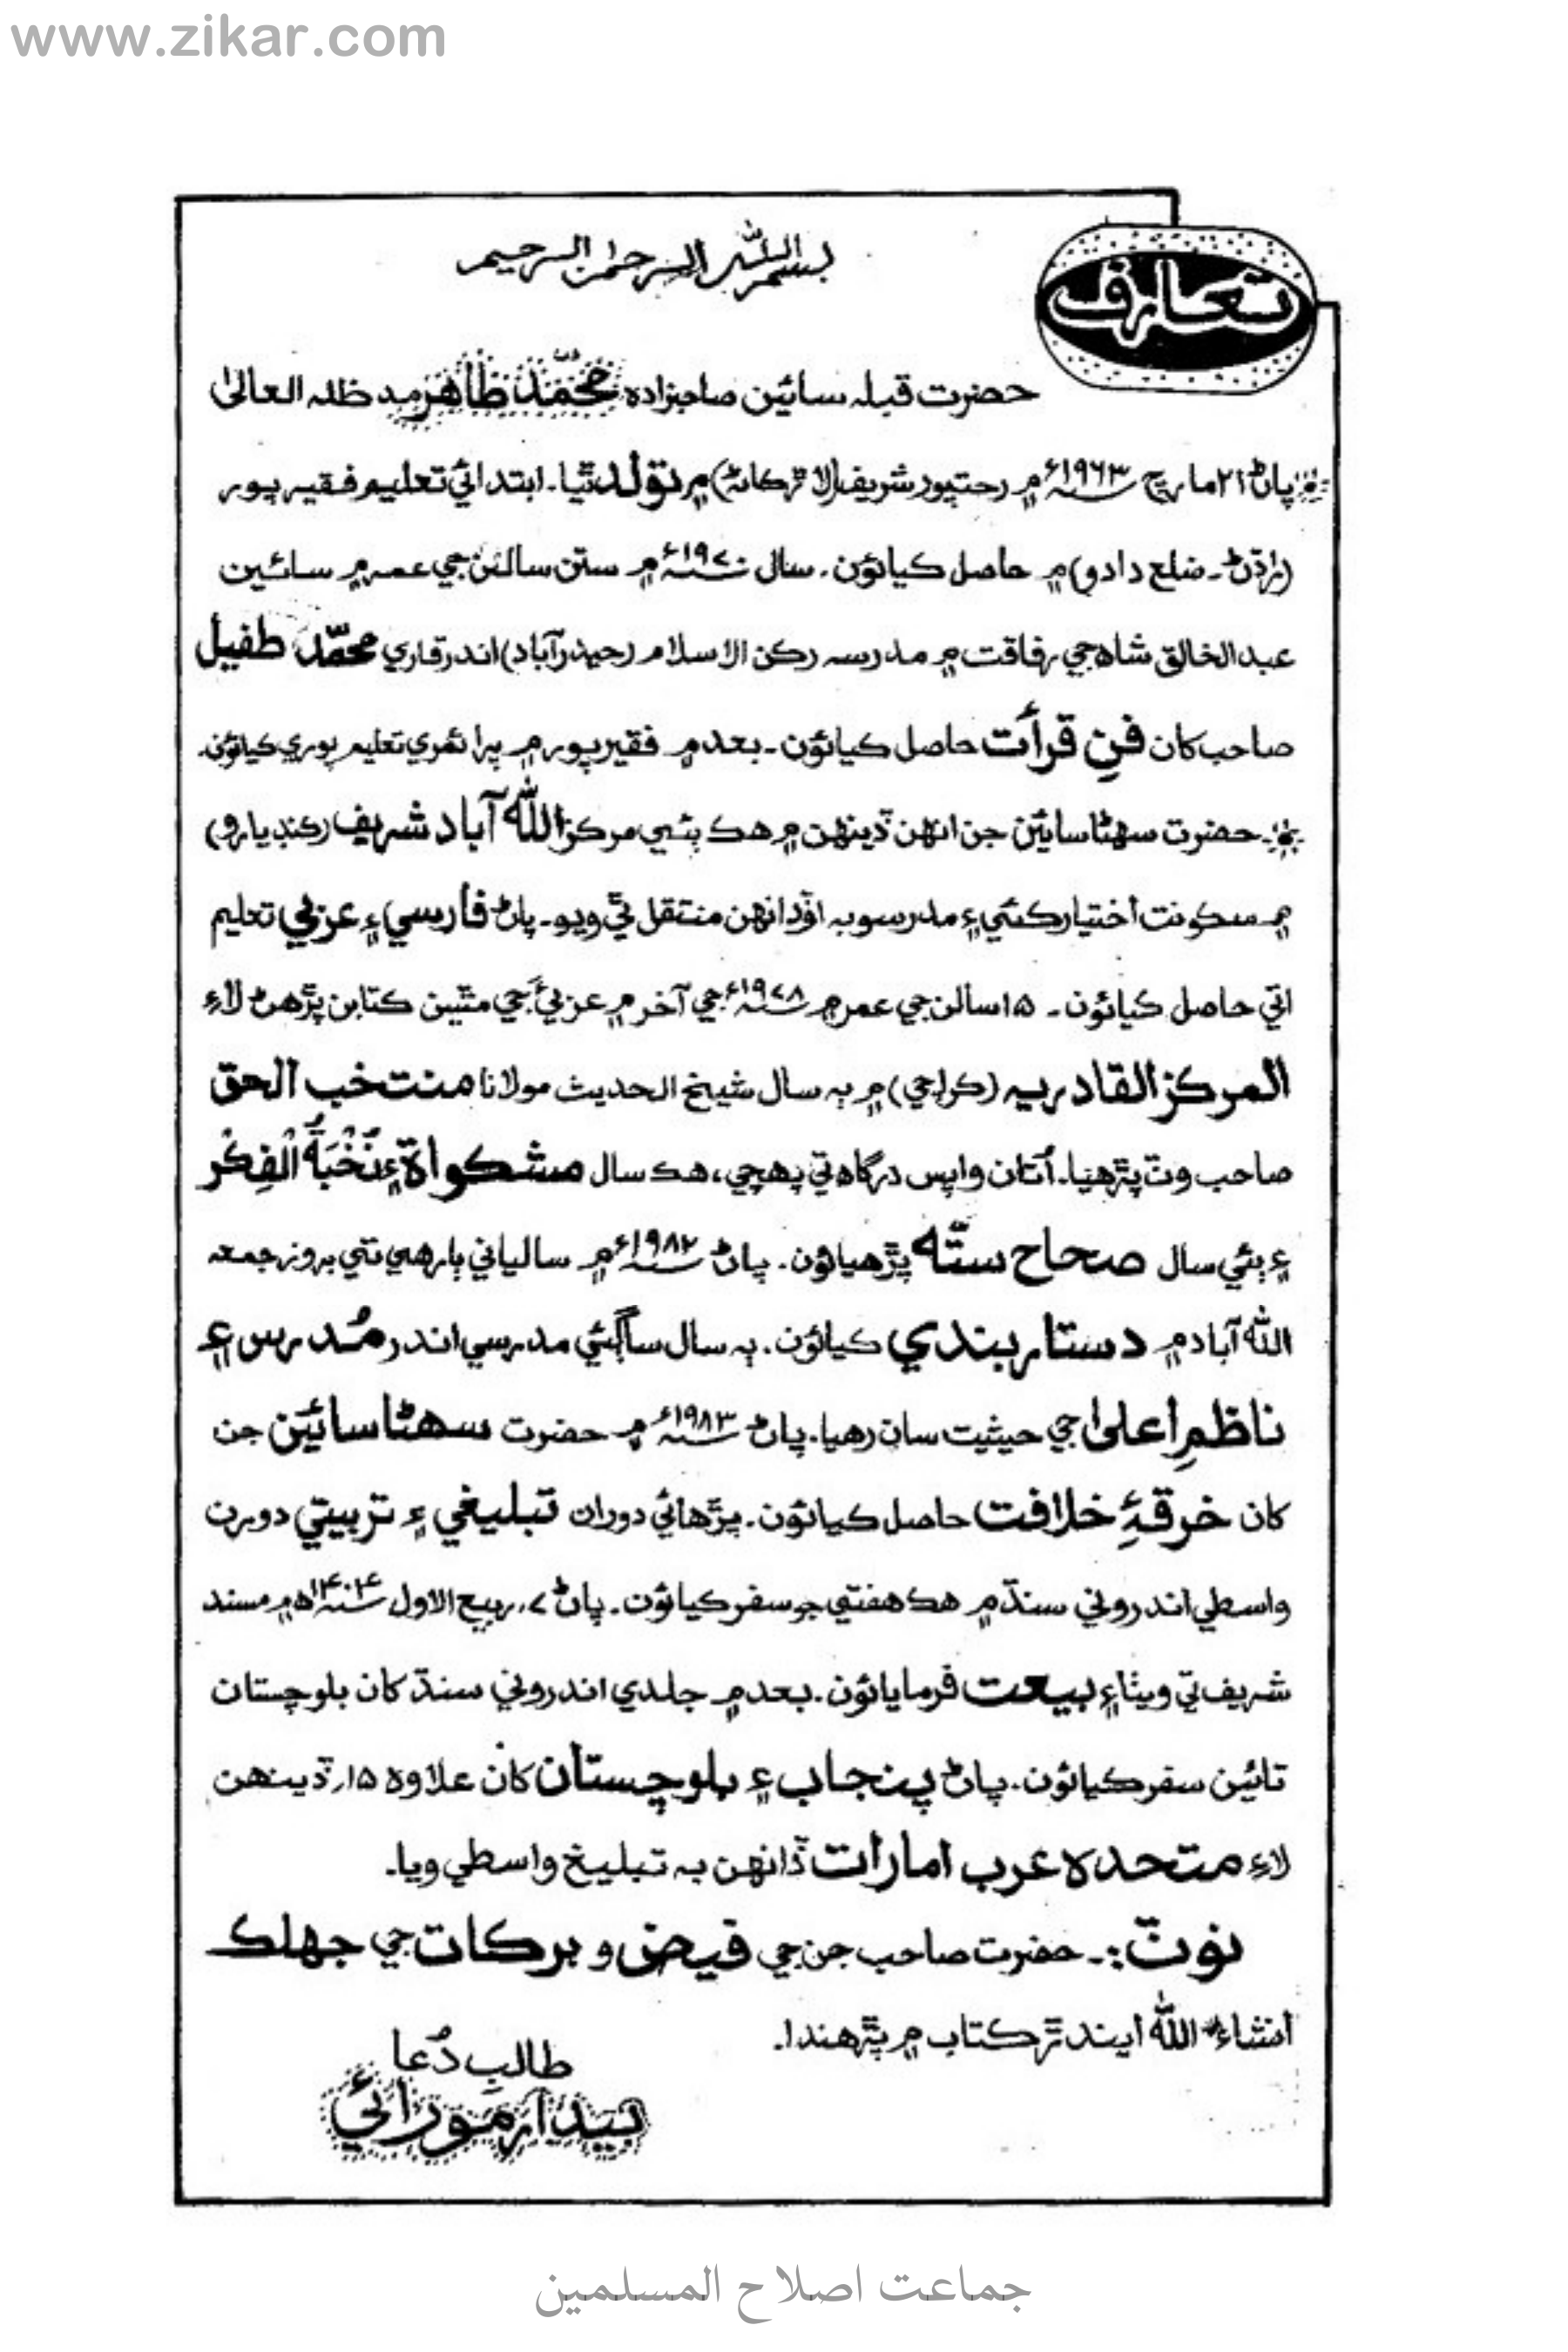 www.zikar.com
بسم الله الرحمن الرحيم
تعارف
حضرت قبله سائين صاحبزاده محمّد طاهر مد ظله العالیٰ
پاڻ ۲۱ مارچ سنه ۱۹۶۳ء ۾ رحمتپور شريف (لاڙڪاڻه) ۾ تولد ٿيا۔ ابتدائي تعليم فقيرپور
(راڌڻ۔ ضلع دادو) ۾ حاصل ڪيائون۔ سال سنه ۱۹۷۰ء ۾ ستن سالن جي عمر ۾ سائين
عبدالخالق شاه جي رفاقت ۾ مدرسه رڪن الاسلام (حيدرآباد) اندر قاري محمّد طفيل
صاحب کان فنِ قرأت حاصل ڪيائون۔ بعد ۾ فقيرپور ۾ پرائمري تعليم پوري ڪيائون۔
حضرت سهڻا سائين جن انهن ڏينهن ۾ هڪ ٻئي مرڪز الله آباد شريف (ڪنڊيارو)
۾ سڪونت اختيار ڪئي ۽ مدرسو به اوڏانهن منتقل ٿي ويو۔ پاڻ فارسي ۽ عربي تعليم
اتي حاصل ڪيائون۔ ۱۵ سالن جي عمر ۾ سنه ۱۹۷۸ء جي آخر ۾ عربيءَ جي مٿين ڪتابن پڙهڻ لاءِ
المرڪز القادريه (ڪراچي) ۾ ٻه سال شيخ الحديث مولانا منتخب الحق
صاحب وٽ پڙهيا۔ اتان واپس درگاه تي پهچي، هڪ سال مشڪواة ۽ نُخْبَةُ الْفِكْر
۽ ٻئي سال صحاح ستّه پڙهيائون۔ پاڻ سنه ۱۹۸۲ء ۾ سالياني ٻارهي تي بروز جمعه
الله آباد ۾ دستاربندي ڪيائون۔ ٻه سال ساڳئي مدرسي اندر مُدرس ۽
ناظمِ اعلیٰ جي حيثيت سان رهيا۔ پاڻ سنه ۱۹۸۳ء ۾ حضرت سهڻا سائين جن
کان خرقهٔ خلافت حاصل ڪيائون۔ پڙهائي دوران تبليغي ۽ تربيتي دورن
واسطي اندروني سنڌ ۾ هڪ هفتي جو سفر ڪيائون۔ پاڻ ۷، ربيع الاول سنه ۱۴۰۴ھ ۾ مسند
شريف تي ويٺا ۽ بيعت فرمايائون۔ بعد ۾ جلدي اندروني سنڌ کان بلوچستان
تائين سفر ڪيائون۔ پاڻ پنجاب ۽ بلوچستان کان علاوه ۱۵، ڏينهن
لاءِ متحده عرب امارات ڏانهن به تبليغ واسطي ويا۔
نوٽ:۔ حضرت صاحب جن جي فيض و برڪات جي جھلڪ
انشاء الله ايندڙ ڪتاب ۾ پڙهندا۔
طالبِ دُعا
بيدار مورائي
جماعت اصلاح المسلمين